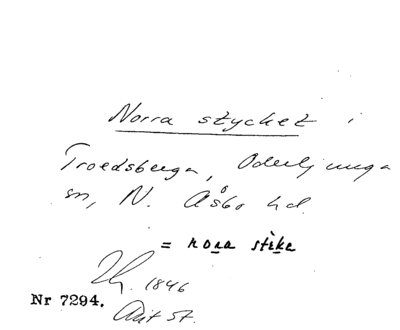 Norra stycket i
Troedsberga, Oderljunga
sn, N. Åsbo hd.
= nora stike
1846
Nr 7294.